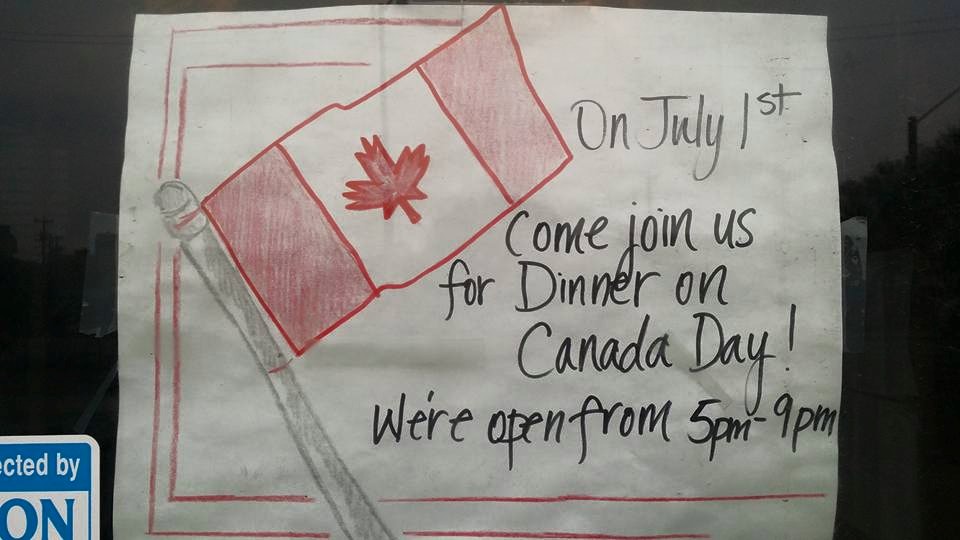 On July 1st
Come join us
for Dinner on
Canada Day!
We're open from 5pm-9pm
ected by
ON